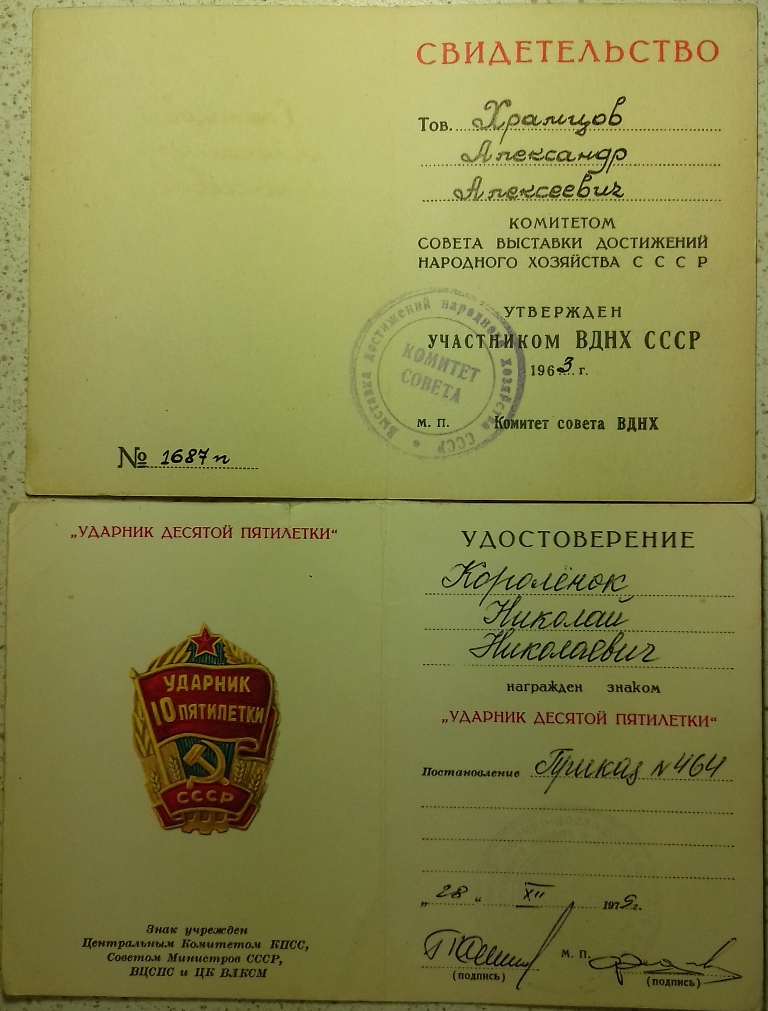 СВИДЕТЕЛЬСТВО
Тов. Храмцов
Александр
Алексеевич
КОМИТЕТОМ
СОВЕТА ВЫСТАВКИ ДОСТИЖЕНИЙ
НАРОДНОГО ХОЗЯЙСТВА СССР
УТВЕРЖДЕН
УЧАСТНИКОМ ВДНХ СССР
1963 г.
Выставка достижений народного хозяйства СССР
КОМИТЕТ
СОВЕТА
М. П. Комитет совета ВДНХ
№ 1687п
„УДАРНИК ДЕСЯТОЙ ПЯТИЛЕТКИ“
УДАРНИК
10 ПЯТИЛЕТКИ
СССР
Знак учрежден
Центральным Комитетом КПСС,
Советом Министров СССР,
ВЦСПС и ЦК ВЛКСМ
УДОСТОВЕРЕНИЕ
Королёнок
Николай
Николаевич
награжден знаком
„УДАРНИК ДЕСЯТОЙ ПЯТИЛЕТКИ“
Постановление Приказ N 464
„28“ XII 197 г.
М. П.
(подпись) (подпись)